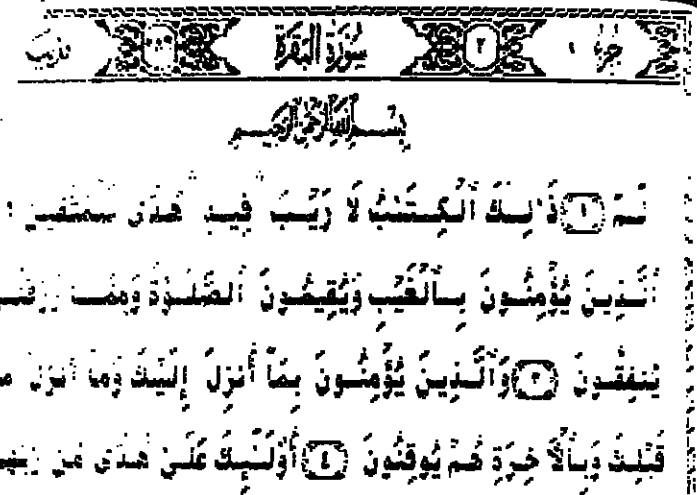 جزء ١ ٢ سُورَةُ الْبَقَرَةِ
بِسْمِ اللَّهِ الرَّحْمَٰنِ الرَّحِيمِ
ـمٓ ١ ذَٰلِكَ ٱلْكِتَٰبُ لَا رَيْبَ فِيهِ هُدًى
ٱلَّذِينَ يُؤْمِنُونَ بِٱلْغَيْبِ وَيُقِيمُونَ ٱلصَّلَوٰةَ وَمِمَّا
يُنفِقُونَ ٣ وَٱلَّذِينَ يُؤْمِنُونَ بِمَآ أُنزِلَ إِلَيْكَ وَمَآ أُنزِلَ
قَبْلِكَ وَبِٱلْأَخِرَةِ هُمْ يُوقِنُونَ ٤ أُوْلَٰٓئِكَ عَلَىٰ هُدًى مِّن